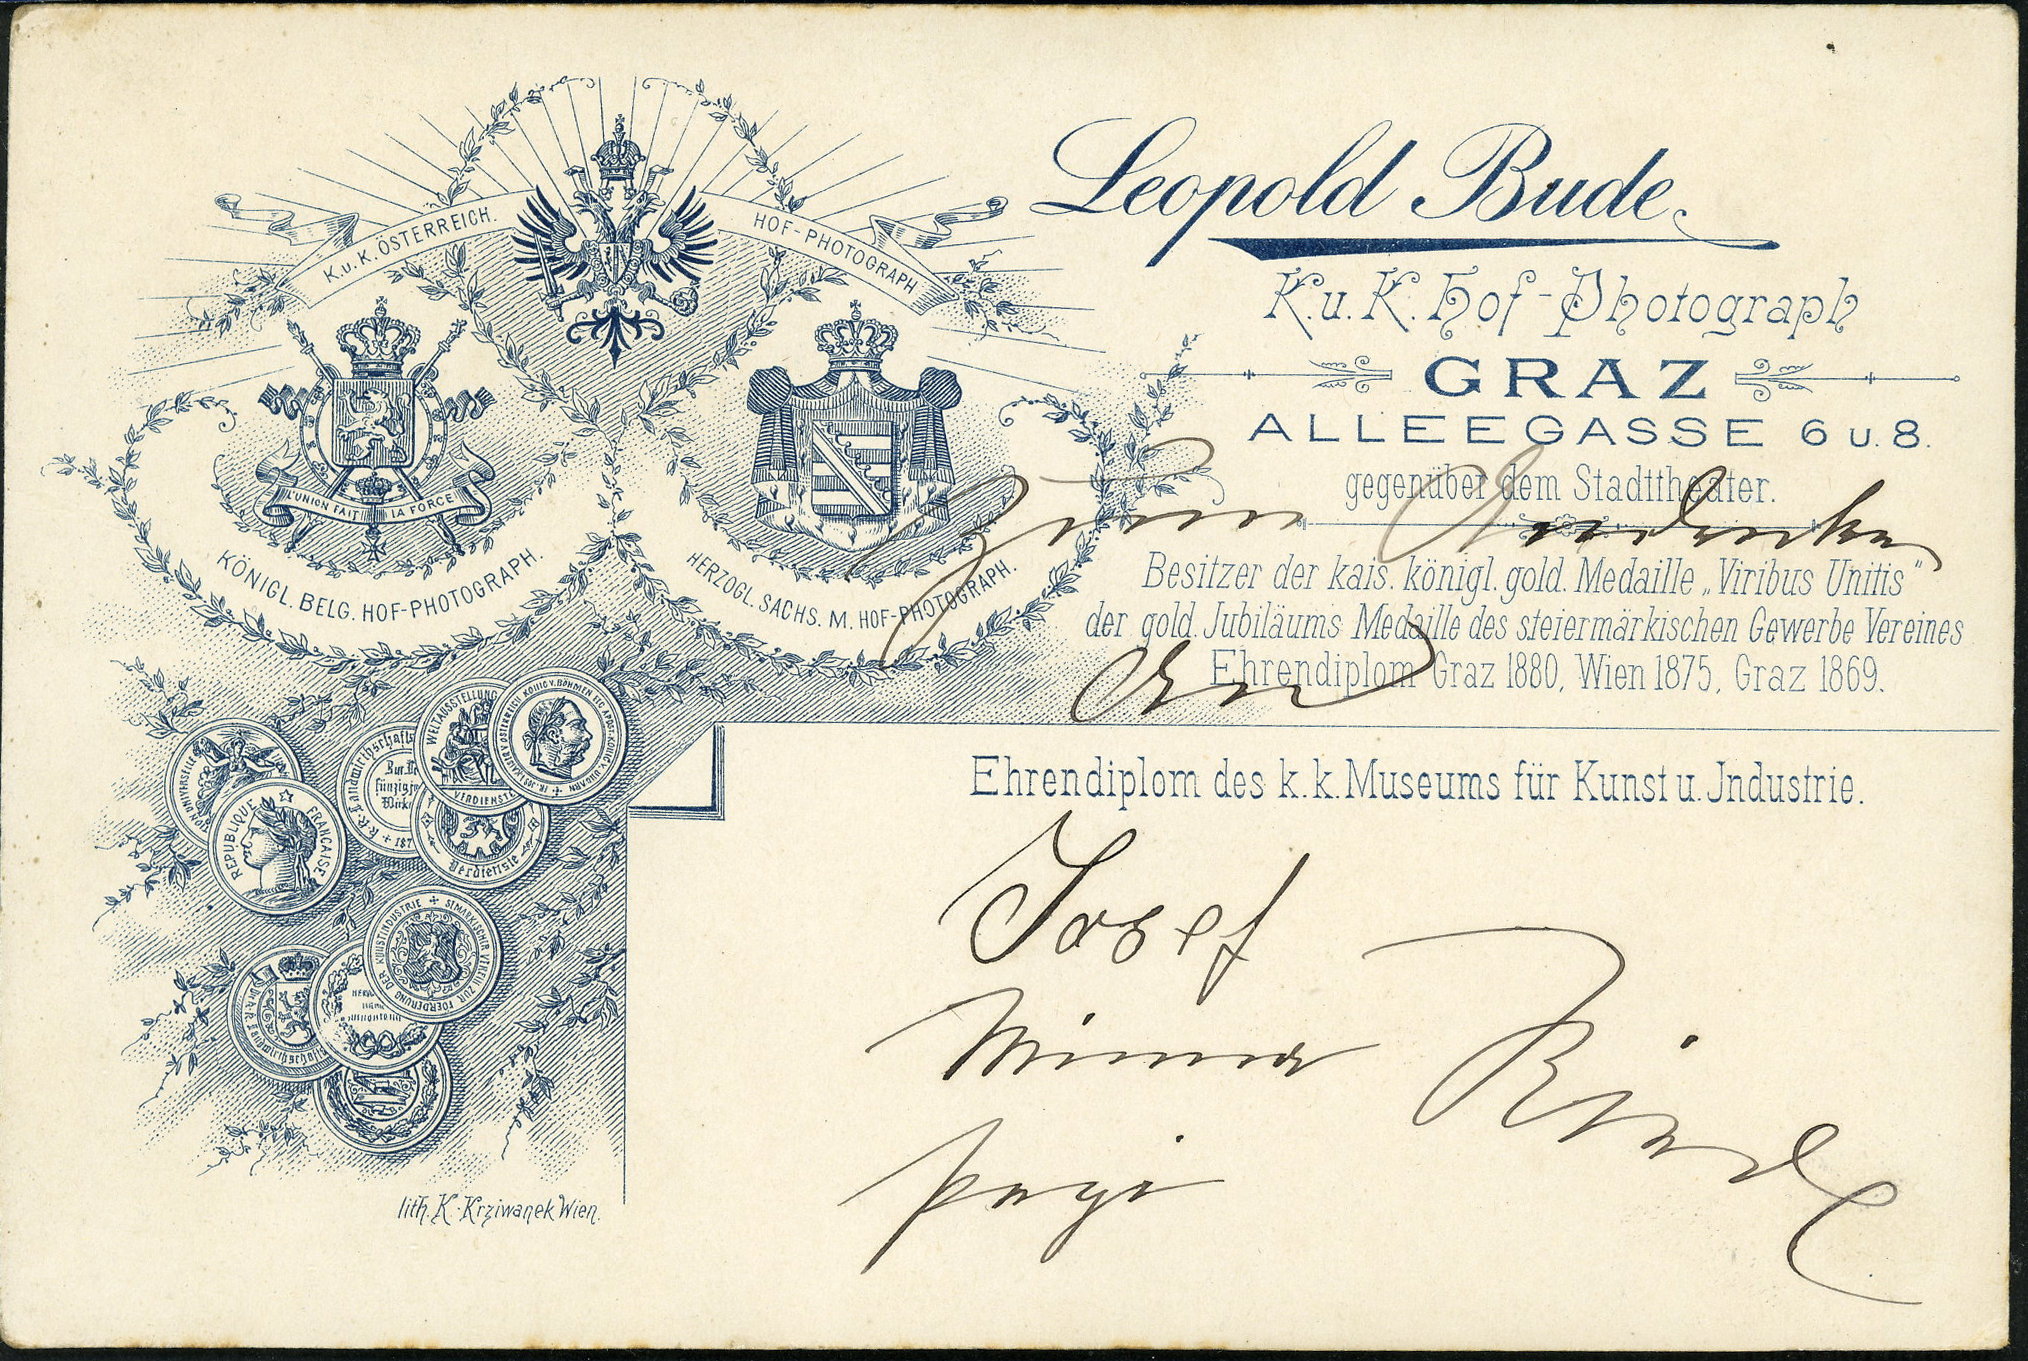 Leopold Bude.
K. u. K. Hof-Photograph
GRAZ
ALLEEGASSE 6 u. 8.
gegenüber dem Stadttheater.
Zum Andenken
Besitzer der kais. königl. gold. Medaille „Viribus Unitis"
der gold. Jubiläums Medaille des steiermärkischen Gewerbe Vereines
Ehrendiplom Graz 1880, Wien 1875, Graz 1869.
Ehrendiplom des k. k. Museums für Kunst u. Jndustrie.
K. u. K. ÖSTERREICH. HOF-PHOTOGRAPH
L'UNION FAIT LA FORCE
KÖNIGL. BELG. HOF-PHOTOGRAPH.
HERZOGL. SACHS. M. HOF-PHOTOGRAPH.
WELTAUSSTELLUNG
REPUBLIQUE FRANCAISE
Verdienste
Josef
Minna
Riedl
lith. K. Krziwanek Wien.